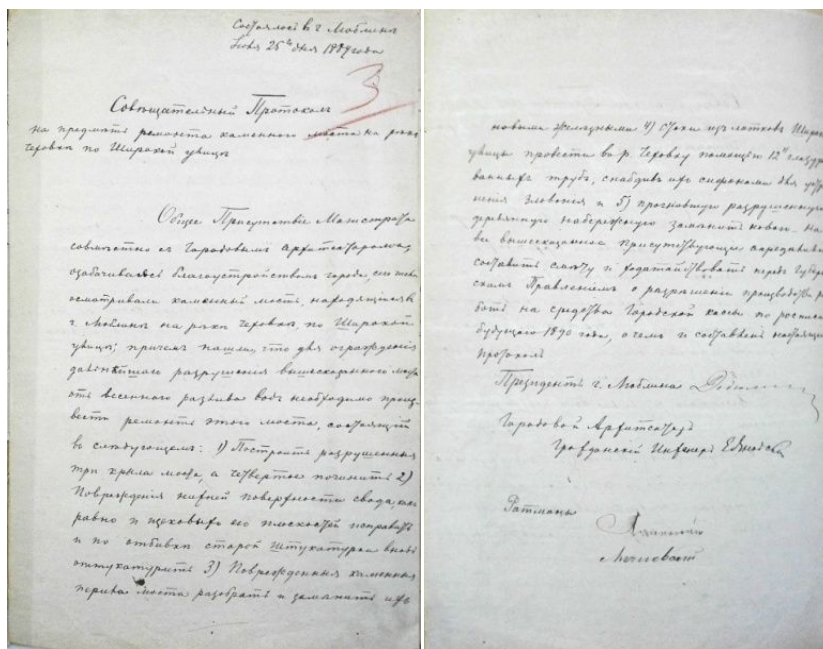 Состоялось в г. Люблине
25 дня 1889 года
3
Совѣщательный Протоколъ
на предметъ ремонта каменнаго моста на рѣкѣ
Чеховкѣ по Широкой улицѣ
Общее Присутствіе Магистрата
совмѣстно съ Городовымъ Архитекторомъ,
озабочиваясь благоустройствомъ города,
осматривали каменный мостъ, находящійся въ
г. Люблинѣ на рѣкѣ Чеховкѣ, по Широкой
улицѣ; причемъ нашли, что для огражденія
дальнѣйшаго разрушенія вышесказаннаго моста
отъ весенняго разлива водъ необходимо произ
вести ремонтъ этого моста, состоящій
въ слѣдующемъ: 1) Построить разрушенныя
три крыла моста, а четвертое починить 2)
Поврежденія нижней поверхности свода, какъ
равно и щековыхъ его плоскостей исправить
и по отбивкѣ старой штукатурки вновь
оштукатурить 3) Поврежденныя каменныя
перила моста разобрать и замѣнить ихъ
новыми желѣзными 4) Стоки изъ лотковъ Широкой
улицы провести въ р. Чеховку помощію 12" глазуро
ванныхъ трубъ, снабдивъ ихъ сифонами для устра
ненія зловонія и 5) прогнившую разрушенную
деревянную набережную замѣнить новою.
вышесказанное присутствующіе
составить смѣту и ходатайствовать передъ Губерн
скимъ Правленіемъ о разрѣшеніи производства ра
ботъ на средства Городской кассы по росписи
будущаго 1890 года, о чемъ и составленъ настоящій
протоколъ
Президентъ г. Люблина
Городовой Архитекторъ
Гражданскій Инженеръ
Ратманы